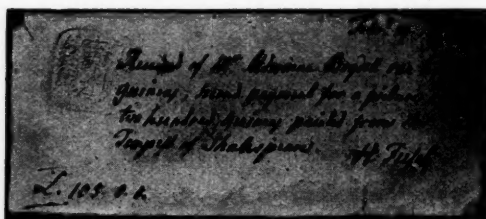 Received of Mr Alderman Boydell one
guineas, being payment for a picture
two hundred guineas painted from the
Tempest of Shakespeare. H. Fuseli
£. 105. 0. 0.